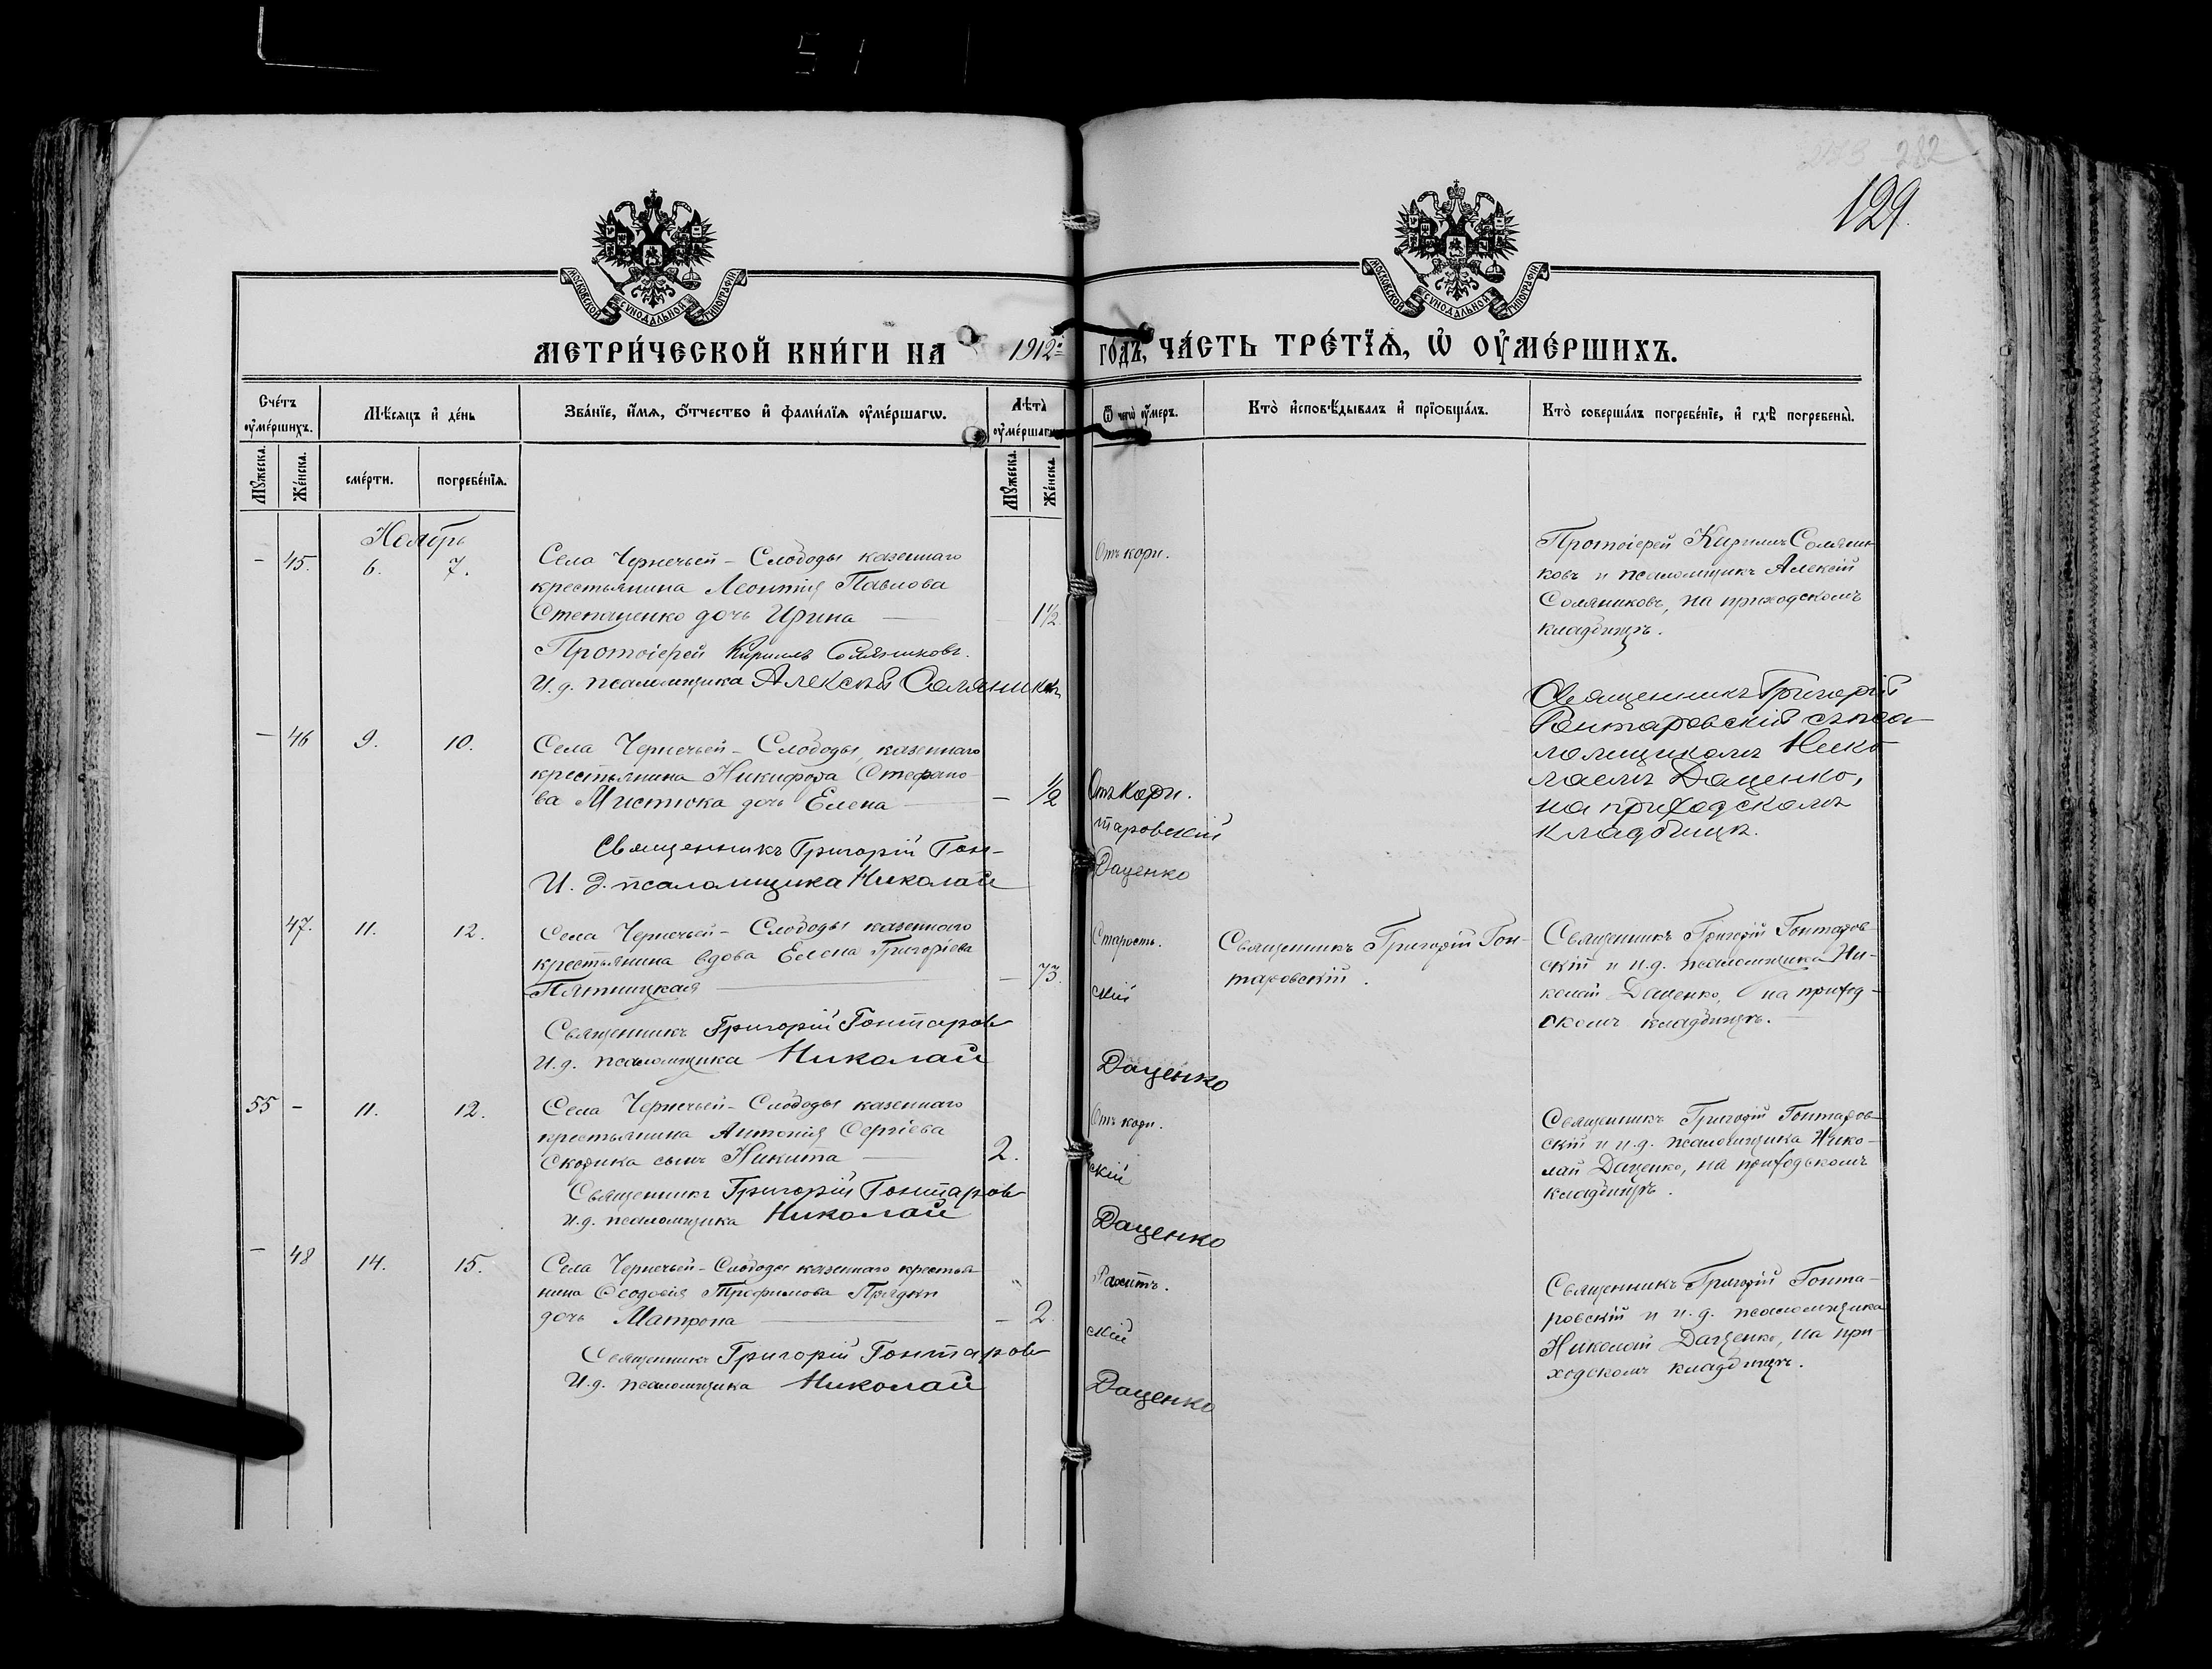 51
282
129.
МОСКОВСКОЙ СѴНОДАЛЬНОЙ ТИПОГРАФІИ
МОСКОВСКОЙ СѴНОДАЛЬНОЙ ТИПОГРАФІИ
МЕТРИ́ЧЕСКОЙ КНИ́ГИ НА 1912й ГО́ДЪ, ЧА́СТЬ ТРЕ́ТЇѦ, Ѡ҆ ОУ҆МЕ́РШИХЪ.
Сче́тъ оу҆ме́ршихъ.
Мѣ́сѧцъ и҆ де́нь
Зва́нїе, и҆́мѧ, ѻ҆́тчество и҆ фами́лїѧ оу҆ме́ршагѡ.
Лѣ́та̀ оу҆ме́ршагѡ
Ѿ чегѡ̀ оу҆́меръ.
Кто̀ и҆сповѣ́дывалъ и҆ прїѡбща́лъ.
Кто̀ соверша́лъ погребе́нїе, и҆ гдѣ̀ погребены̀.
Мꙋ́жеска.
Же́нска.
сме́рти.
погребе́нїѧ.
Мꙋ́жеска.
Же́нска.
Ноябрь
- 45. 6. 7.
Села Чернечьей-Слободы казеннаго
крестьянина Леонтія Павлова
Степаненко дочь Ирина — 1½
Протоіерей Кириллъ Соляниковъ.
И.д. псаломщика Алексѣй Соляниковъ
Отъ кори.
Протоіерей Кириллъ Соляни-
ковъ и псаломщикъ Алексѣй
Соляниковъ, на приходскомъ
кладбищѣ.
- 46 9. 10.
Села Чернечьей-Слободы, казеннаго
крестьянина Никифора Стефано-
ва Мистюка дочь Елена — — ½
Священникъ Григорій Гон-
таровскій
И. д. псаломщика Николай
Даценко
Отъ Кори.
Священникъ Григорій
Гонтаровскій съ пса-
ломщикомъ Нико
лаемъ Даценко,
на приходскомъ
кладбищѣ.
47. 11. 12.
Села Чернечьей-Слободы казеннаго
крестьянина вдова Елена Григоріева
Пятницкая — — 73.
Священникъ Григорій Гонтаров
скій
И.д. псаломщика Николай
Даценко
Старость.
Священникъ Григорій Гон-
таровскій.
Священникъ Григорій Гонтаров-
скій и и.д. псаломщика Ни-
колай Даценко, на приход-
скомъ кладбищѣ.
55 - 11. 12.
Села Чернечьей-Слободы казеннаго
крестьянина Антонія Сергіева
Скорика сынъ Никита — 2.
Священникъ Григорій Гонтаров
скій
И.д. псаломщика Николай
Даценко
Отъ кори.
Священникъ Григорій Гонтаров-
скій и и.д. псаломщика Нико-
лай Даценко, на приходскомъ
кладбищѣ.
- 48 14. 15.
Села Чернечьей-Слободы казеннаго крестья
нина Ѳеодосія Трофимова Прядки
дочь Матрона — — 2.
Священникъ Григорій Гонтаров
скій
И.д. псаломщика Николай
Даценко
Рахитъ.
Священникъ Григорій Гонта-
ровскій и и.д. псаломщика
Николай Даценко, на при-
ходскомъ кладбищѣ.